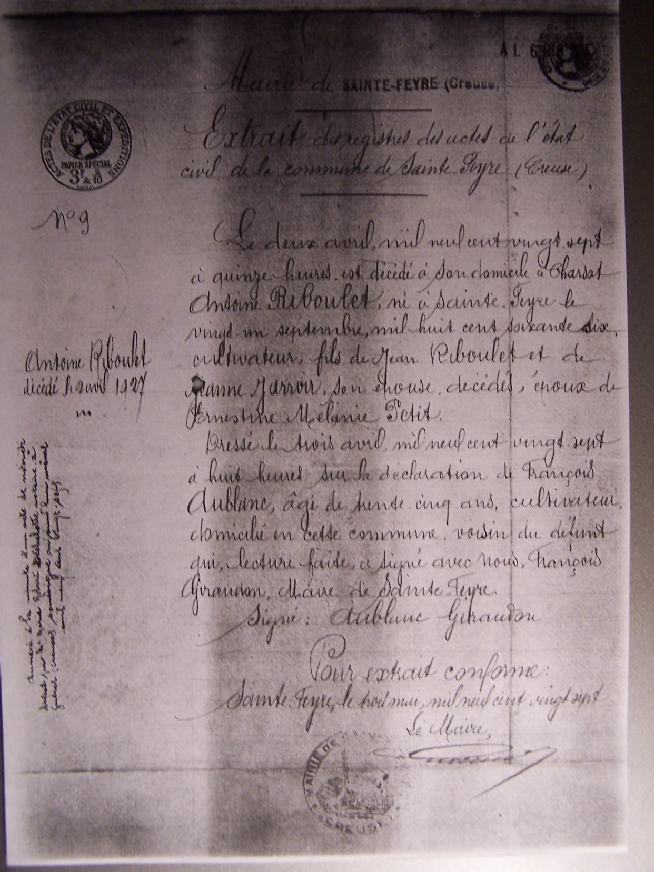 AL 6
Mairie de SAINTE-FEYRE (Creuse)
ACTES DE L'ÉTAT CIVIL ET EXPÉDITIONS
PAPIER SPÉCIAL
3F
Extrait des registres des actes de l'état
civil de la commune de Sainte Feyre (Creuse)
N° 9
Le deux avril, mil neuf cent vingt sept
à quinze heures, est décédé à son domicile à Charsat
Antoine Riboulet, né à Sainte Feyre le
vingt un septembre, mil huit cent soixante six,
cultivateur, fils de Jean Riboulet et de
Jeanne Jarroir, son épouse, décédés, époux de
Ernestine Mélanie Petit.
Antoine Riboulet
décédé le 2 avril 1927
Dressé le trois avril, mil neuf cent vingt sept
à huit heures, sur la déclaration de François
Aublanc, âgé de trente cinq ans, cultivateur,
domicilié en cette commune, voisin du défunt
qui, lecture faite, a signé avec Nous, François
Giraudon, Maire de Sainte Feyre.
Signé: Aublanc Giraudon
Annexé à la minute d'un acte de
Pour extrait conforme:
Sainte-Feyre, le trois mai, mil neuf cent vingt sept
Le Maire,
MAIRIE DE
CREUSE